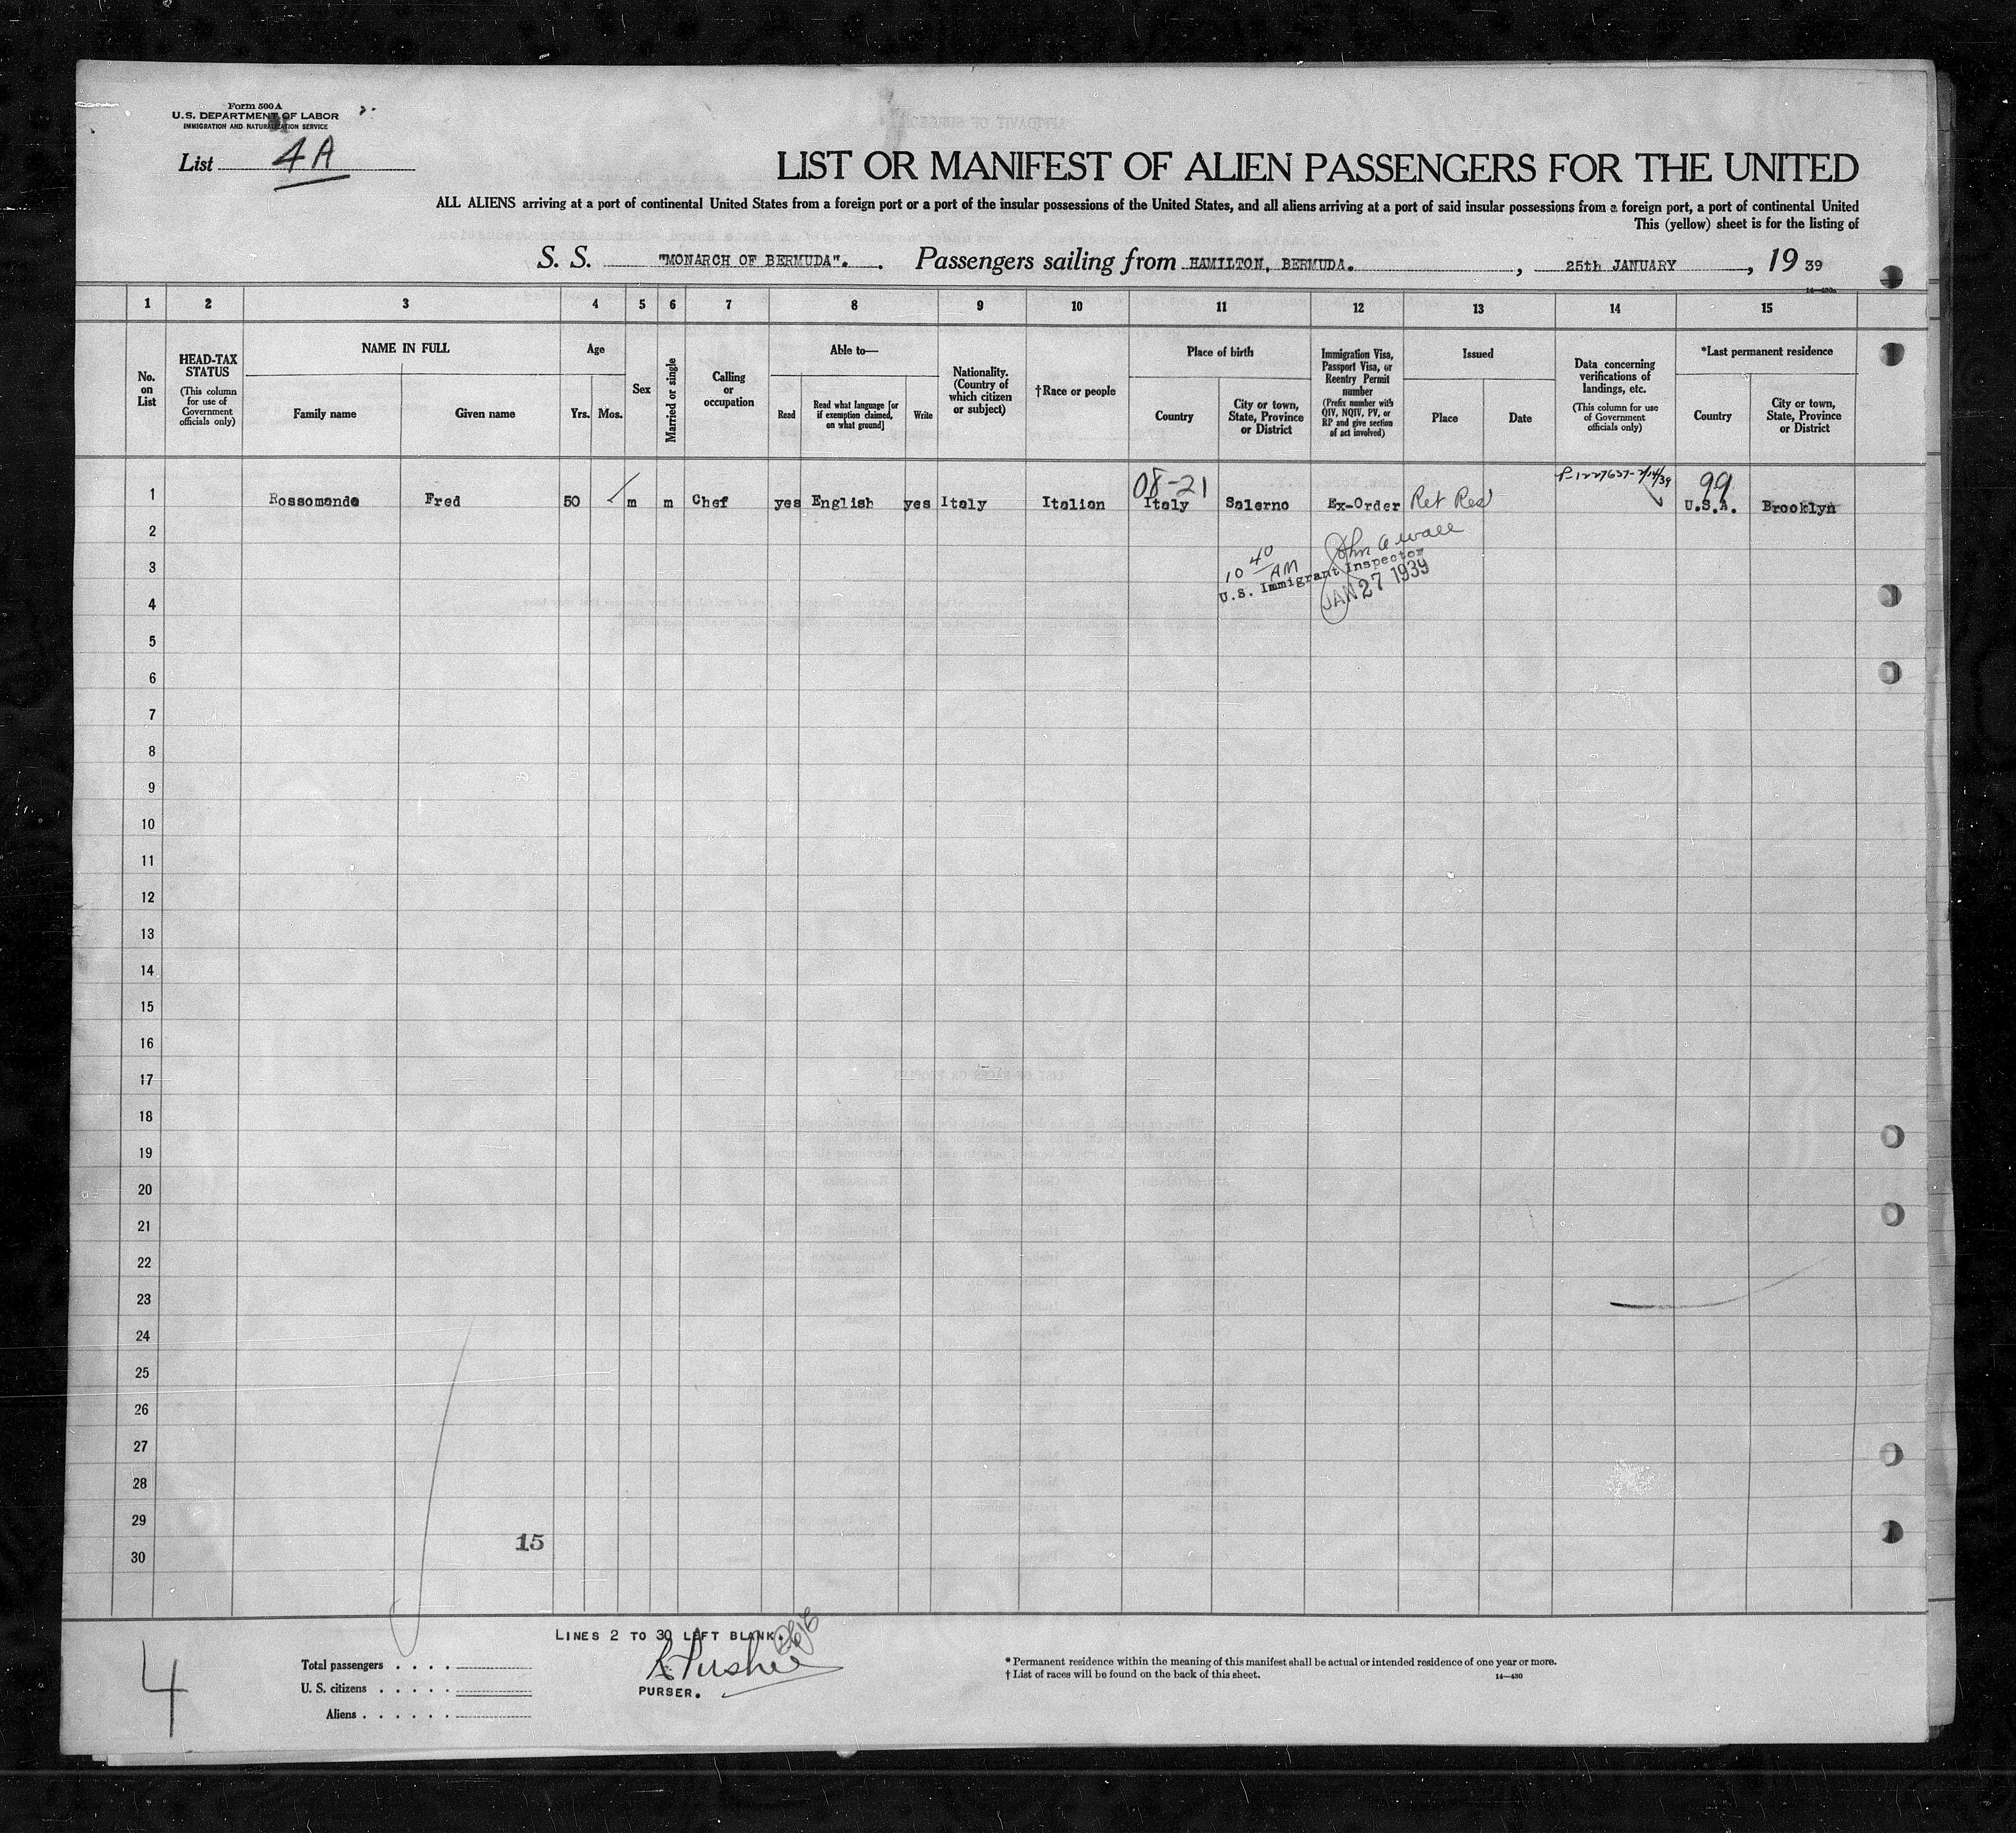 Form 500 A
U.S. DEPARTMENT OF LABOR
IMMIGRATION AND NATURALIZATION SERVICE
List 4A
LIST OR MANIFEST OF ALIEN PASSENGERS FOR THE UNITED
ALL ALIENS arriving at a port of continental United States from a foreign port or a port of the insular possessions of the United States, and all aliens arriving at a port of said insular possessions from a foreign port, a port of continental United
This (yellow) sheet is for the listing of
S. S. "MONARCH OF BERMUDA". Passengers sailing from HAMILTON, BERMUDA. , 25th JANUARY , 19 39
14—430a
1 2 3 4 5 6 7 8 9 10 11 12 13 14 15
No. on List
HEAD-TAX STATUS (This column for use of Government officials only)
NAME IN FULL
Family name Given name
Age
Yrs. Mos.
Sex
Married or single
Calling or occupation
Able to—
Read
Read what language [or if exemption claimed, on what ground]
Write
Nationality. (Country of which citizen or subject)
†Race or people
Place of birth
Country
City or town, State, Province or District
Immigration Visa, Passport Visa, or Reentry Permit number (Prefix number with QIV, NQIV, PV, or RP and give section of act involved)
Issued
Place Date
Data concerning verifications of landings, etc. (This column for use of Government officials only)
*Last permanent residence
Country
City or town, State, Province or District
08-21 P-1227637-2/14/39 99
1 Rossomando Fred 50 m m Chef yes English yes Italy Italian Italy Salerno Ex-Order Ret Res U.S.A. Brooklyn
2
3
4
10 40 AM John A Wall
U.S. Immigrant Inspector
JAN 27 1939
5
6
7
8
9
10
11
12
13
14
15
16
17
18
19
20
21
22
23
24
25
26
27
28
29
15
30
LINES 2 TO 30 LEFT BLANK.
4
Total passengers
U. S. citizens
Aliens
PURSER.
* Permanent residence within the meaning of this manifest shall be actual or intended residence of one year or more.
† List of races will be found on the back of this sheet.
14—430